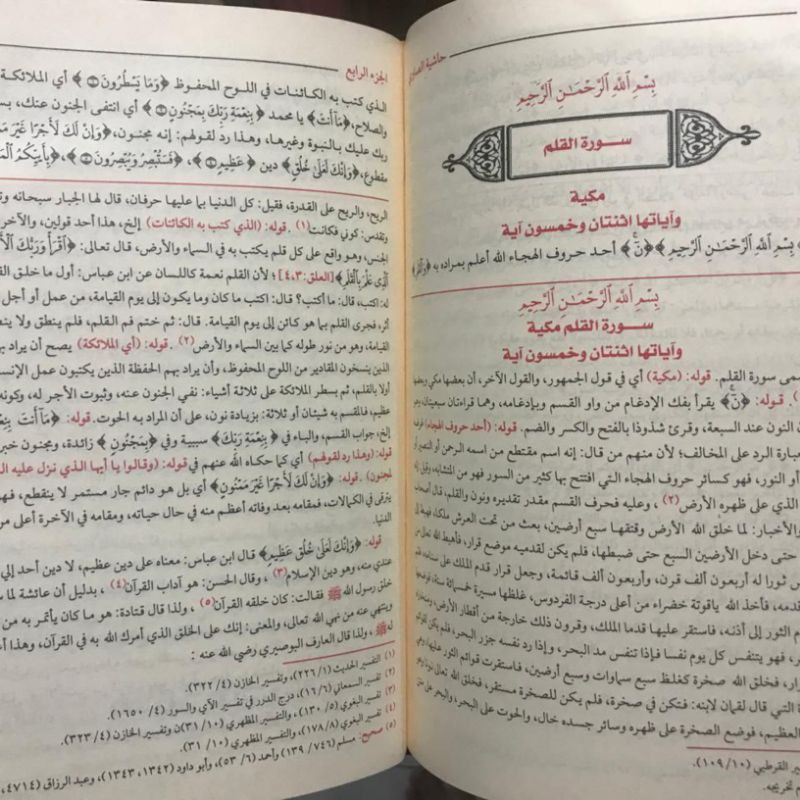 حاشية الصاوي
بِسْمِ ٱللَّهِ ٱلرَّحْمَـٰنِ ٱلرَّحِيمِ
سورة القلم
مكية
وآياتها اثنتان وخمسون آية
﴿بِسْمِ ٱللَّهِ ٱلرَّحْمَـٰنِ ٱلرَّحِيمِ﴾ ﴿نٓ﴾ أحد حروف الهجاء الله أعلم بمراده به ﴿وَٱلْقَلَمِ
بِسْمِ ٱللَّهِ ٱلرَّحْمَـٰنِ ٱلرَّحِيمِ
سورة القلم مكية
وآياتها اثنتان وخمسون آية
سمى سورة القلم. قوله: (مكية) أي في قول الجمهور، والقول الآخر، أن بعضها مكي وبعضها
). قوله: ﴿نٓ﴾ يقرأ بفك الإدغام من واو القسم وبإدغامه، وهما قراءتان سبعيتان،
النون عند السبعة، وقرئ شذوذا بالفتح والكسر والضم. قوله: (أحد حروف الهجاء)
عبارة الرد على المخالف؛ لأن منهم من قال: إنه اسم مقتطع من اسمه الرحمن أو النصير أو
أو النور، فهو كسائر حروف الهجاء التي افتتح بها كثير من السور فهو من المتشابه، وقيل إنه
الذي على ظهره الأرض (٢)، وعليه فحرف القسم مقدر تقديره ونون والقلم، قال أصحاب
والأخبار: لما خلق الله الأرض وفتقها سبع أرضين، بعث من تحت العرش ملكا، فهبط إلى
حتى دخل الأرضين السبع حتى ضبطها، فلم يكن لقدميه موضع قرار، فأهبط الله تعالى من
ثورا له أربعون ألف قرن، وأربعون ألف قائمة، وجعل قرار قدم الملك على سنامه، فلم
قدمه، فأخذ الله ياقوتة خضراء من أعلى درجة الفردوس، غلظها مسيرة خمسمائة سنة، فوضعها
الثور إلى أذنه، فاستقر عليها قدما الملك، وقرون ذلك خارجة من أقطار الأرض، ومنخراه
، فهو يتنفس كل يوم نفسا فإذا تنفس مد البحر، وإذا رد نفسه جزر البحر، فلم يكن
قرار، فخلق الله صخرة كغلظ سبع سماوات وسبع أرضين، فاستقرت قوائم الثور عليها، وهي
التي قال لقمان لابنه: فتكن في صخرة، فلم يكن للصخرة مستقر، فخلق الله تعالى نونا وهو
العظيم، فوضع الصخرة على ظهره وسائر جسده خال، والحوت على البحر، والبحر على متن
القرطبي (١٠/ ١٠٩).
تخريجه.
الجزء الرابع
الذي كتب به الكائنات في اللوح المحفوظ ﴿وَمَا يَسْطُرُونَ ۝﴾ أي الملائكة
والصلاح، ﴿مَآ أَنتَ﴾ يا محمد ﴿بِنِعْمَةِ رَبِّكَ بِمَجْنُونٍ ۝﴾ أي انتفى الجنون عنك، بسبب
ربك عليك بالنبوة وغيرها، وهذا رد لقولهم: إنه مجنون، ﴿وَإِنَّ لَكَ لَأَجْرًا غَيْرَ
مقطوع، ﴿وَإِنَّكَ لَعَلَىٰ خُلُقٍ﴾ دين ﴿عَظِيمٍ ۝﴾، ﴿فَسَتُبْصِرُ وَيُبْصِرُونَ ۝﴾، ﴿بِأَييِّكُمُ
الريح، والريح على القدرة، فقيل: كل الدنيا بما عليها حرفان، قال لها الجبار سبحانه
وتقدس: كوني فكانت (١). قوله: (الذي كتب به الكائنات) إلخ، هذا أحد قولين، والآخر
الجنس، وهو واقع على كل قلم يكتب به في السماء والأرض، قال تعالى: ﴿ٱقْرَأْ وَرَبُّكَ
ٱلَّذِى عَلَّمَ بِٱلْقَلَمِ﴾ [العلق: ٣، ٤] ؛ لأن القلم نعمة كاللسان عن ابن عباس: أول ما خلق الله
له: اكتب، قال: ما أكتب؟ قال: اكتب ما كان وما يكون إلى يوم القيامة، من عمل أو أجل
أثر، فجرى القلم بما هو كائن إلى يوم القيامة. قال: ثم ختم فم القلم، فلم ينطق ولا
القيامة، وهو من نور طوله كما بين السماء والأرض (٢). قوله: (أي الملائكة) يصح أن يراد بهم
الذين ينسخون المقادير من اللوح المحفوظ، وأن يراد بهم الحفظة الذين يكتبون عمل
أولا بالقلم، ثم بسطر الملائكة على ثلاثة أشياء: نفي الجنون عنه، وثبوت الأجر له، وكونه
عظيم، فالمقسم به شيئان أو ثلاثة: بزيادة نون، على أن المراد به الحوت. قوله: ﴿مَآ أَنتَ
إلخ، جواب القسم، والباء في ﴿بِنِعْمَةِ رَبِّكَ﴾ سببية وفي ﴿بِمَجْنُونٍ﴾ زائدة، ومجنون خبر
قوله: (وهذا رد لقولهم) أي كما حكاه الله عنهم في قوله: (وقالوا يا أيها الذي نزل عليه
لمجنون) . قوله: ﴿وَإِنَّ لَكَ لَأَجْرًا غَيْرَ مَمْنُونٍ﴾ أي بل هو دائم جار مستمر لا ينقطع،
يترقى في الكمالات، فمقامه بعد وفاته أعظم منه في حال حياته، ومقامه في الآخرة أعلى من
الدنيا.
قوله: ﴿وَإِنَّكَ لَعَلَىٰ خُلُقٍ عَظِيمٍ﴾ قال ابن عباس: معناه على دين عظيم، لا دين أحد إلي
عندي منه، وهو دين الإسلام (٣)، وقال الحسن: هو آداب القرآن (٤)، بدليل أن عائشة لما
خلق رسول الله ﷺ فقالت: كان خلقه القرآن (٥)، ولذا قال قتادة: هو ما كان يأتمر به من
وينتهي عنه من نهي الله تعالى، والمعنى: إنك على الخلق الذي أمرك الله به في القرآن، وهذا
له ﷺ، ولذا قال العارف البوصيري رضي الله عنه :
(١) التفسير الحديث (١/ ٢٢٦)، وتفسير الخازن (٤/ ٣٢٢).
(٢) تفسير السمعاني (٦/ ١٦)، درج الدرر في تفسير الآي والسور (٤/ ١٦٥٠).
(٣) تفسير البغوي (٥/ ١٣٠)، والتفسير المظهري (١٠/ ٣١) وتفسير الخازن (٤/ ٣٢٣).
(٤) تفسير البغوي (٨/ ١٧٨)، والتفسير المظهري (١٠/ ٣١).
(٥) صحيح: مسلم (٧٤٦/ ١٣٩) وأحمد (٦/ ٥٣)، وأبو داود (١٣٤٢، ١٣٤٣)، وعبد الرزاق (٤٧١٤)،